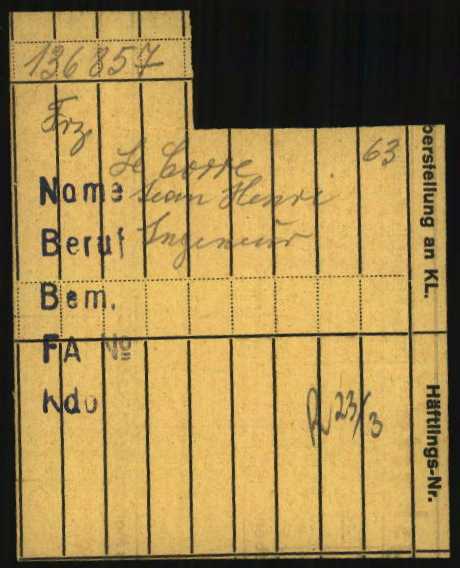 136857
Frz
Le Corre 63
Name Jean Henri
Beruf Ingenieur
Bem.
FA No
Kdo
R 23/3
berstellung an KL.
Häftlings-Nr.